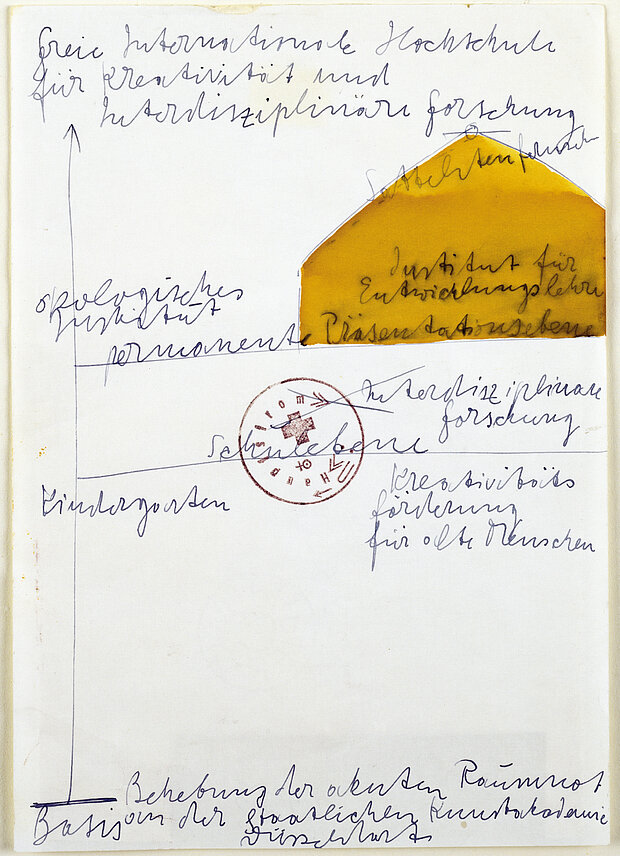 Freie Internationale Hochschule
für Kreativität und
Interdisziplinäre Forschung
Institut für
Entwicklungslehre
ökologisches
Institut
permanente Präsentationsebene
Interdisziplinäre
Forschung
Hauptstrom
Schulebene
Kindergarten
Kreativitäts
förderung
für alte Menschen
Behebung der akuten Raumnot
Basis an der Staatlichen Kunstakademie
Düsseldorf